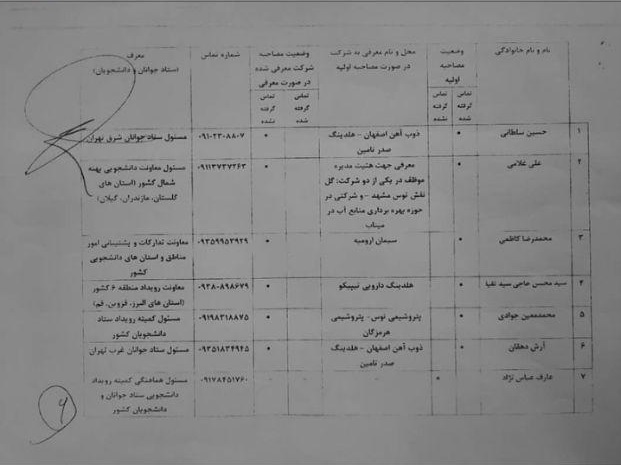 نام و نام خانوادگی
وضعیت مصاحبه اولیه
تماس گرفته شده
تماس گرفته نشده
محل و نام معرفی به شرکت در صورت مصاحبه اولیه
وضعیت مصاحبه شرکت معرفی شده در صورت معرفی
تماس گرفته شده
تماس گرفته نشده
شماره تماس
معرف
(ستاد جوانان و دانشجویان)
۱ حسین سلطانی ذوب آهن اصفهان - هلدینگ صدر تامین ۰۹۱۰۲۳۰۸۸۰۷ مسئول ستاد جوانان شرق تهران
۲ علی غلامی معرفی جهت هئیت مدیره
موظف در یکی از دو شرکت: گل
نقش توس مشهد - و شرکتی در
حوزه بهره برداری منابع آب در
میناب
۰۹۱۱۳۷۳۷۲۶۳
مسئول معاونت دانشجویی پهنه
شمال کشور (استان های
گلستان، مازندران، گیلان)
۳ محمدرضا کاظمی سیمان ارومیه ۰۹۳۵۹۹۵۳۹۲۹
معاونت تدارکات و پشتیبانی امور
مناطق و استان های دانشجویی
کشور
۴ سید محسن حاجی سید تقیا هلدینگ دارویی تیپیکو ۰۹۳۸۰۸۹۸۶۷۹
معاونت رویداد منطقه ۶ کشور
(استان های البرز، قزوین، قم)
۵ محمدمعین جوادی پتروشیمی توس - پتروشیمی
هرمزگان
۰۹۱۹۸۳۱۸۸۷۵
مسئول کمیته رویداد ستاد
دانشجویان کشور
۶ آرش دهقان ذوب آهن اصفهان - هلدینگ
صدر تامین
۰۹۳۵۱۸۳۴۹۴۵ مسئول ستاد جوانان غرب تهران
۷ عارف عباس نژاد ۰۹۱۷۸۴۵۱۷۶۰
مسئول هماهنگی کمیته رویداد
دانشجویی ستاد جوانان و
دانشجویان کشور
۴